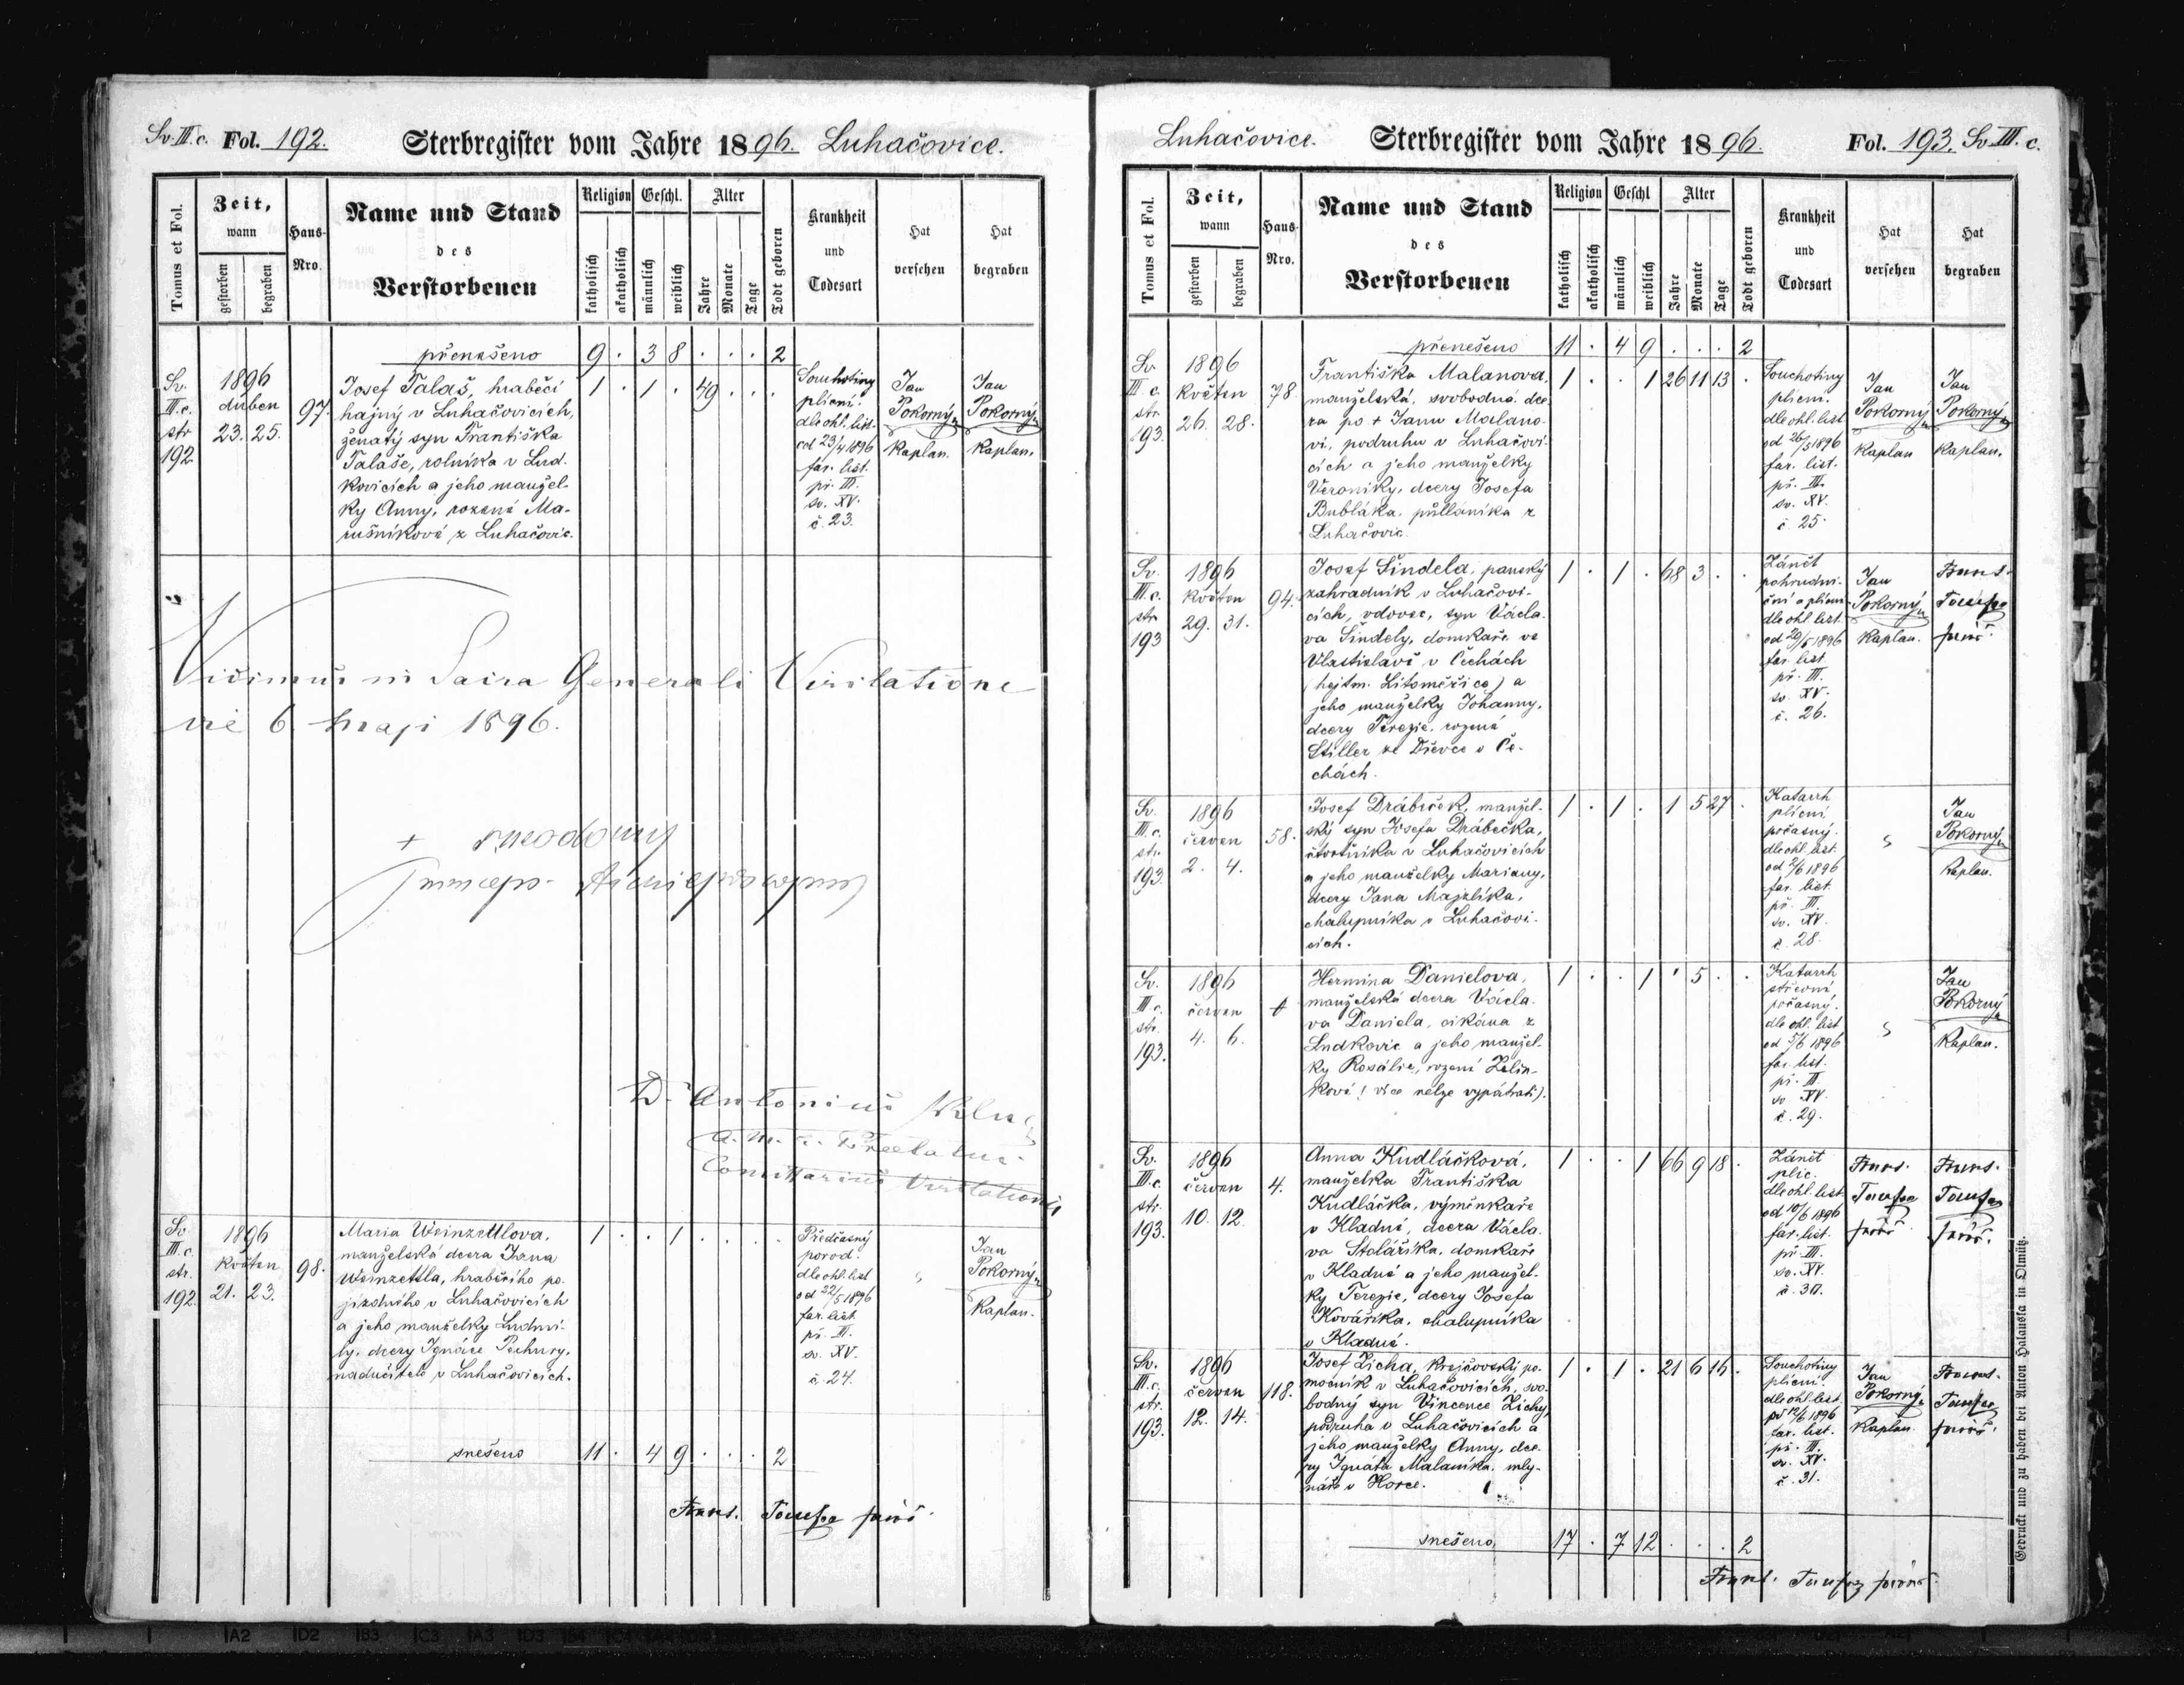 Sv. III. c. Fol. 192. Sterbregister vom Jahre 1896. Luhačovice.
Tomus et Fol.
Zeit, wann
gestorben
begraben
Haus-Nro.
Name und Stand
des
Verstorbenen
Religion
katholisch
akatholisch
Geschl.
männlich
weiblich
Alter
Jahre
Monate
Tage
Todt geboren
Krankheit
und
Todesart
Hat
versehen
Hat
begraben
přenešeno 9 . 3 8 . . . 2
Sv.
III. c.
str
192.
1896
duben
23. 25.
97.
Josef Talaš, hraběcí
hajný v Luhačovicích,
ženatý syn Františka
Talaše, rolníka v Lud-
kovicích a jeho manžel-
ky Anny, rozené Ma-
rušníkové z Luhačovic.
1 . 1 . 49 . . .
Souchotiny
plicní
dle ohl. list.
od 23/4 1896
far. list.
př. III.
sv. XV.
č. 23.
Jan
Pokorný
Kaplan.
Jan
Pokorný
Kaplan.
Vidimus in Sacra Generali Visitatione
die 6. maji 1896.
+ Theodorus
Princeps Archiepiscopus
Dr Antonius
Praelatus
Comissarius Visitationis
Sv
III. c.
str.
192.
1896
Květen
21. 23.
98.
Maria Weinzettlova,
manželská dcera Jana
Weinzettla, hraběcího po-
jezdného v Luhačovicích
a jeho manželky Ludmi-
ly, dcery Ignáce Pechury,
nadučitele v Luhačovicích.
1 . . 1 . . . .
Předčasný
porod.
dle ohl. list
od 22/5 1896
far. list
př. III.
sv. XV.
č. 24.
Jan
Pokorný
Kaplan.
snešeno 11 . 4 9 . . . 2
Frant. farář
Luhačovice. Sterbregister vom Jahre 1896. Fol. 193. Sv. III. c.
Tomus et Fol.
Zeit,
wann
gestorben
begraben
Haus-Nro.
Name und Stand
des
Verstorbenen
Religion
katholisch
akatholisch
Geschl
männlich
weiblich
Alter
Jahre
Monate
Tage
Todt geboren
Krankheit
und
Todesart
Hat
versehen
Hat
begraben
přenešeno 11 . 4 9 . . . 2
Sv
III. c.
str
193.
1896
Květen
26. 28.
78.
Františka Malanova,
manželská, svobodná dce-
ra po + Janu Malano-
vi, podruhu v Luhačovi-
cích a jeho manželky
Veroniky, dcery Josefa
Bubláka, půlláníka z
Luhačovic.
1 . . 1 26 11 13 .
Souchotiny
plicní.
dle ohl. list
od 26/5 1896
far. list.
př. III.
sv. XV.
č. 25.
Jan
Pokorný
Kaplan
Jan
Pokorný
Kaplan.
Sv.
III. c.
str
193
1896
Květen
29. 31.
94.
Josef Šindela, panský
zahradník v Luhačovi-
cích, vdovec, syn Václa-
va Šindely, domkaře ve
Vlastislavě v Čechách
(hejtm. Litoměřice) a
jeho manželky Johanny,
dcery Terezie, rozené
Stiller ze Dřevce v Če-
chách.
1 . 1 . 68 3 . .
Zánět
pohrudni-
ční a plicní
dle ohl. list
od 29/5 1896
far. list
př. III.
sv. XV.
č. 26.
Jan
Pokorný
Kaplan.
Frant.
farář.
Sv.
III. c.
str.
193.
1896
červen
2. 4.
58.
Josef Drábeček, manžel-
ský syn Josefa Drábečka,
čtvrtníka v Luhačovicích
a jeho manželky Mariany,
dcery Jana Majzlíka,
chalupníka v Luhačovi-
cích.
1 . 1 . 1 5 27 .
Katarrh
plicní
počasný.
dle ohl. list.
od 2/6 1896
far. list.
př. III.
sv. XV.
č. 28.
Jan
Pokorný
Kaplan.
Sv.
III. c.
str.
193.
1896
červen
4. 6.
Hermina Danielova,
manželská dcera Václa-
va Daniela, cikána z
Ludkovic a jeho manžel-
ky Rosálie, rození Zelin-
kové (více nelze vypátrati).
1 . . 1 . 5 . .
Katarrh
střevní
počasný.
dle ohl. list
od 5/6 1896
far. list.
př. III
sv. XV.
č. 29.
Jan
Pokorný
Kaplan.
Sv.
III. c.
str.
193.
1896
červen
10. 12.
4.
Anna Kudláčková,
manželka Františka
Kudláčka, výměnkaře
v Kladné, dcera Václa-
va Stolaříka, domkaře
v Kladné a jeho manžel-
ky Terezie, dcery Josefa
Kovářika, chalupníka
v Kladné.
1 . . 1 66 9 18 .
Zánět
plic.
dle ohl. list.
od 10/6 1896
far. list.
př. III.
sv. XV.
č. 30.
Frant.
farář
Frant.
farář.
Sv.
III. c.
str.
193.
1896
červen
12. 14.
118.
Josef Zicha, krejčovský po-
mocník v Luhačovicích, svo-
bodný syn Vincence Zichy,
podruha v Luhačovicích a
jeho manželky Anny, dce-
ry Ignáta Malaníka, mly-
náře v Horce.
1 . 1 . 21 6 16 .
Souchotiny
plicní.
dle ohl. list.
od 12/6 1896
far. list.
př. III.
sv. XV.
č. 31.
Jan
Pokorný
Kaplan.
Frant.
farář.
snešeno 17 . 7 12 . . . 2
Frant. farář.
Gedruckt und zu haben bei Anton Halauska in Olmütz.